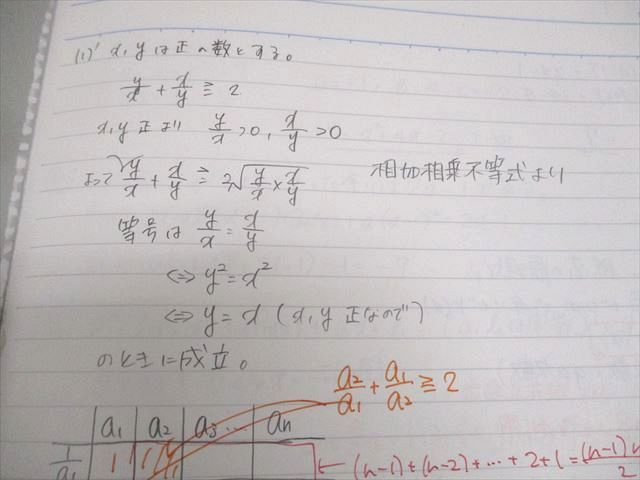 (1)' x,yは正の数とする。
y/x + x/y ≧ 2
x,y正より y/x>0, x/y>0
よって y/x + x/y ≧ 2√(y/x × x/y) 相加相乗不等式より
等号は y/x = x/y
⇔ y² = x²
⇔ y = x (x,y 正なので)
のときに成立。
a₂/a₁ + a₁/a₂ ≧ 2
a₁ a₂ a₃… aₙ
1/a₁ 1
← (n-1)+(n-2)+…+2+1=(n-1)n/2